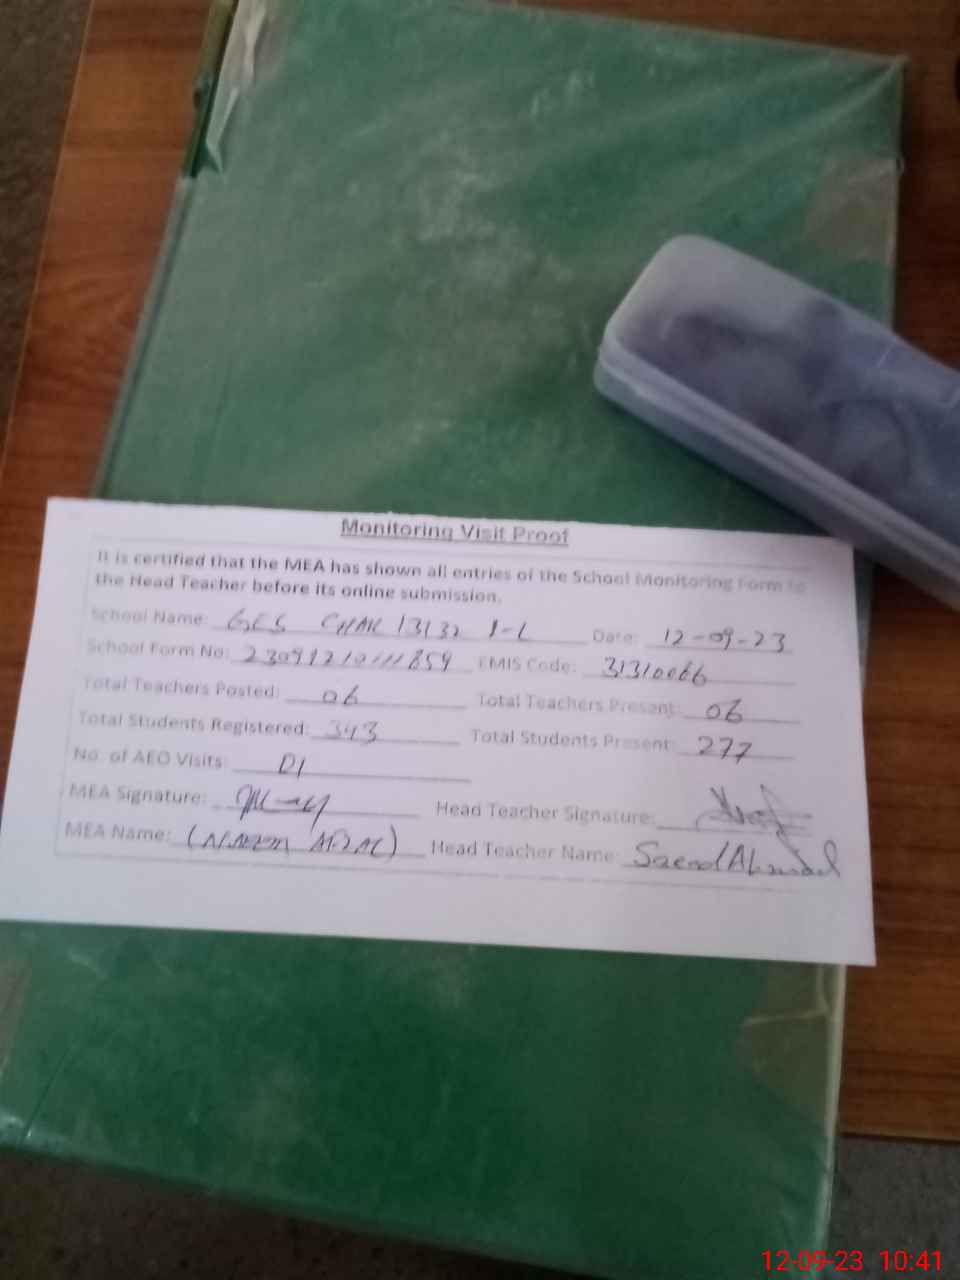 Monitoring Visit Proof
It is certified that the MEA has shown all entries of the School Monitoring Form to
the Head Teacher before its online submission.
School Name: GES CHAK 13132 1-L Date: 12-09-23
School Form No: EMIS Code: 31310066
Total Teachers Posted: 06 Total Teachers Present: 06
Total Students Registered: 343 Total Students Present: 277
No. of AEO Visits: 01
MEA Signature: Head Teacher Signature:
MEA Name: Head Teacher Name: Saeed Ahmad
12-09-23 10:41